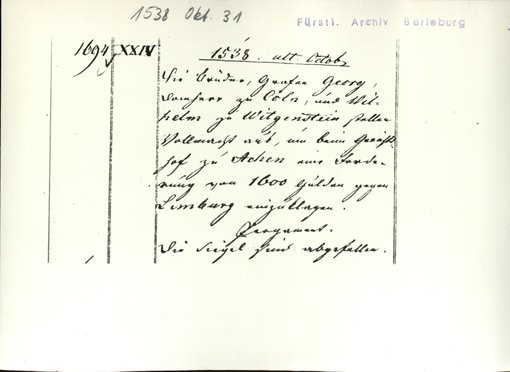 1538 Okt. 31
Fürstl. Archiv Berleburg
1694 XXIV
1538. ult. Octob.
Die Brüder, Grafen Georg,
Domherr zu Cöln, und Wil-
helm zu Witgenstein, stellen
Vollmacht aus, um beim Gerichts-
hof zu Achen eine Forde-
rung von 1600 Gülden gegen
Limburg einzuklagen.
Pergament.
Die Siegel sind abgefallen.